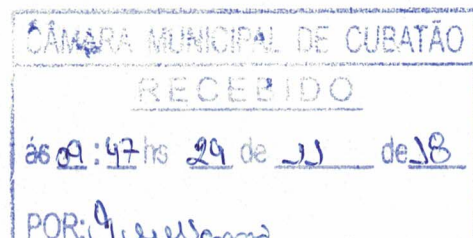 CÂMARA MUNICIPAL DE CUBATÃO
RECEBIDO
ás 09:47 hs 29 de 11 de 18
POR: